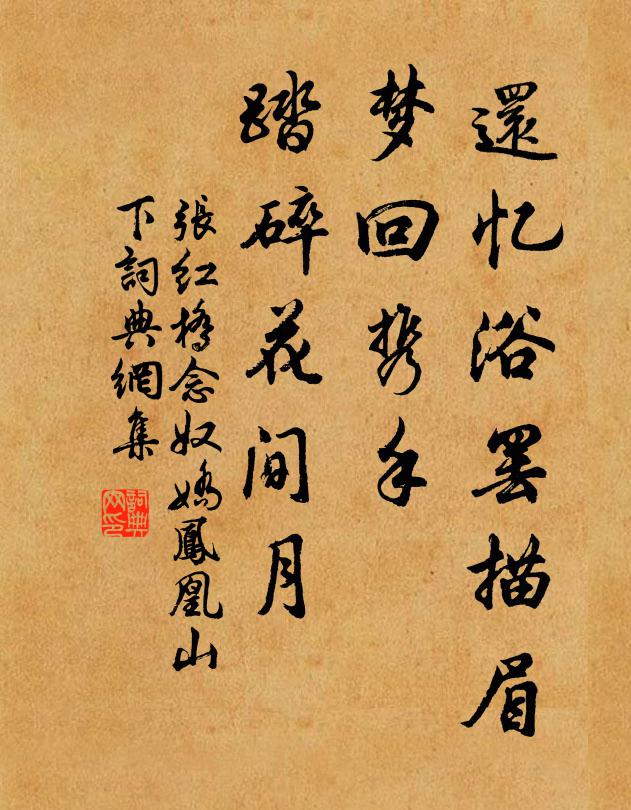 還忆浴罢描眉
梦回携手
踏碎花间月
張红橋念奴嬌鳳凰山
下詞典網集
詞典网印